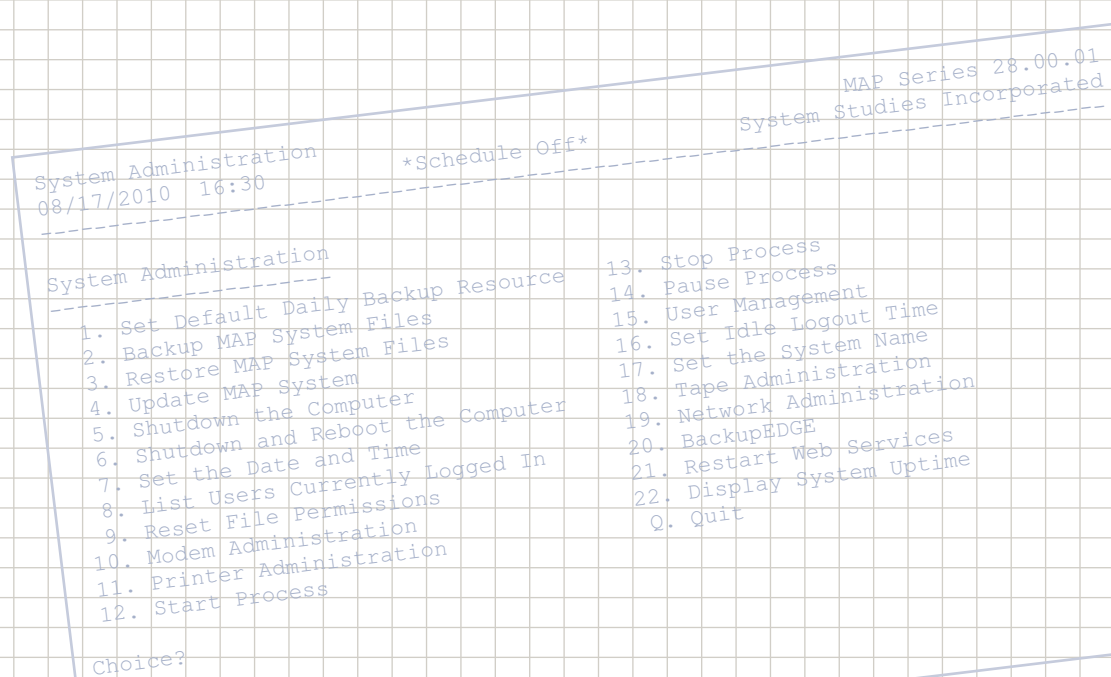 MAP Series 28.00.01
System Studies Incorporated
System Administration *Schedule Off*
08/17/2010 16:30
System Administration
1. Set Default Daily Backup Resource
2. Backup MAP System Files
3. Restore MAP System Files
4. Update MAP System
5. Shutdown the Computer
6. Shutdown and Reboot the Computer
7. Set the Date and Time
8. List Users Currently Logged In
9. Reset File Permissions
10. Modem Administration
11. Printer Administration
12. Start Process
13. Stop Process
14. Pause Process
15. User Management
16. Set Idle Logout Time
17. Set the System Name
18. Tape Administration
19. Network Administration
20. BackupEDGE
21. Restart Web Services
22. Display System Uptime
Q. Quit
Choice?